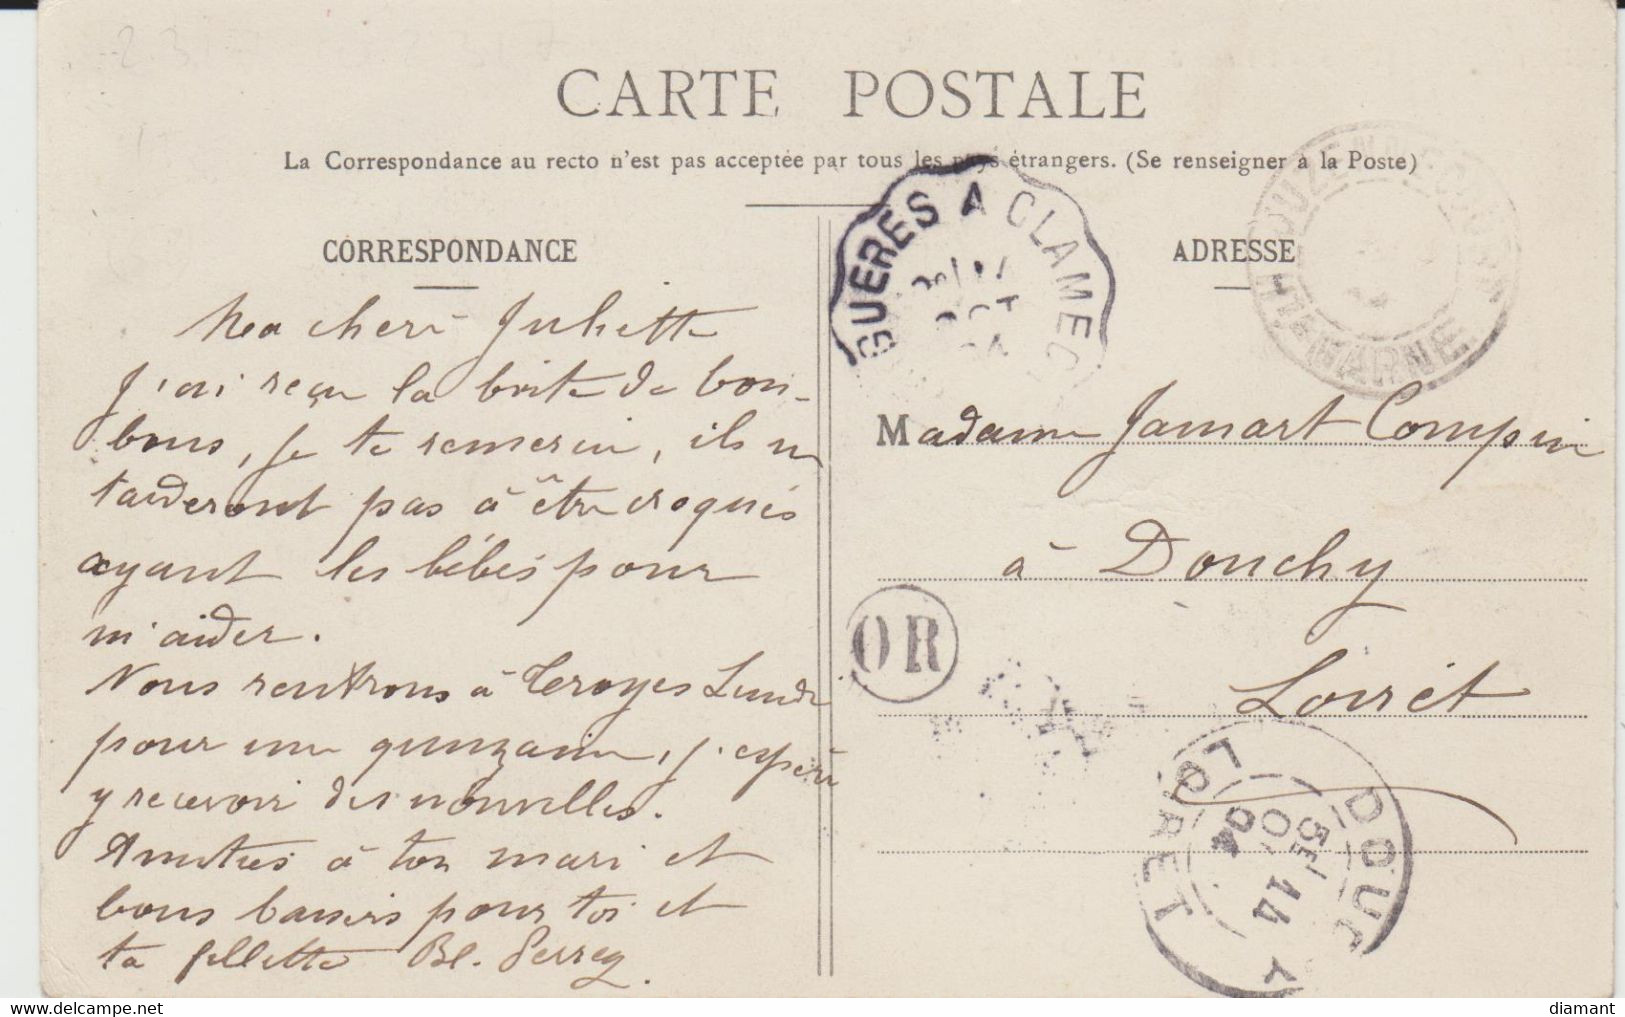 CARTE POSTALE
La Correspondance au recto n'est pas acceptée par tous les pays étrangers. (Se renseigner à la Poste)
CORRESPONDANCE
Ma cheré Juliette
J'ai reçu la boite de bon-
bons, je te remercie, ils ne
tarderont pas à être croqués
ayant les bébés pour
m'aider.
Nous rentrons à Troyes Lundi
pour une quinzaine, j'espère
y recevoir des nouvelles.
Amitiés à ton mari et
bons baisers pour toi et
ta fillette Bl. Perrey.
ADRESSE
Madame Jamart Compin
à Douchy
Loiret
GUERES A CLAMEC
OCT
HTE MARNE
OR
DOUC Y
LOIRET
5E 14
OC
04
https://www.delcampe.net
diamant